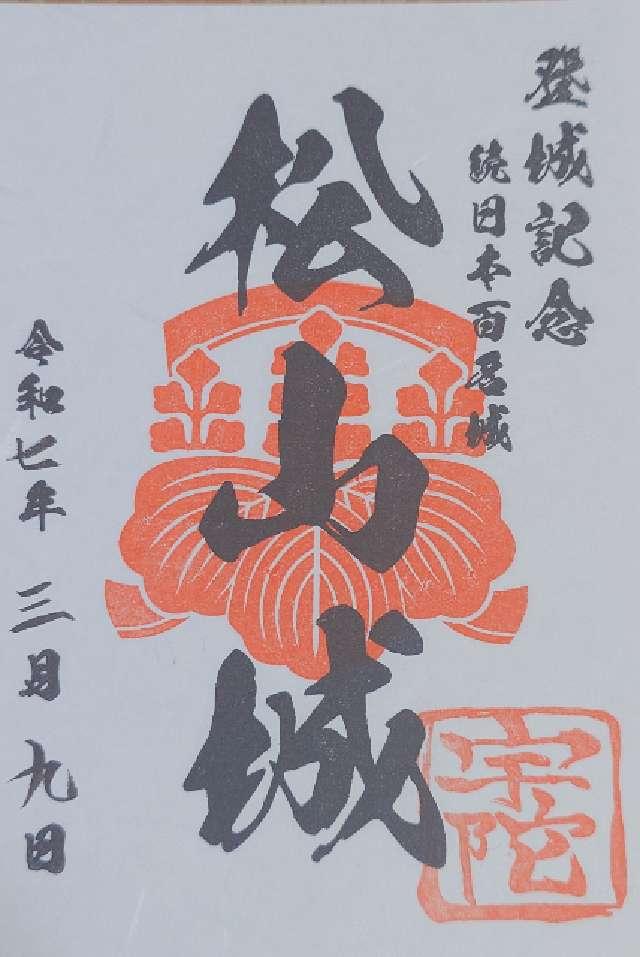 登城記念
続日本百名城
松山城
令和七年 三月 九日
宇陀